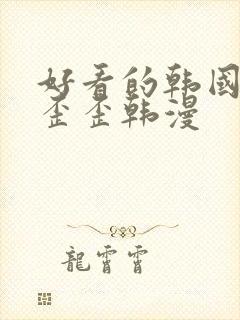 好看的韩國
歪歪韩漫
龍霄霄